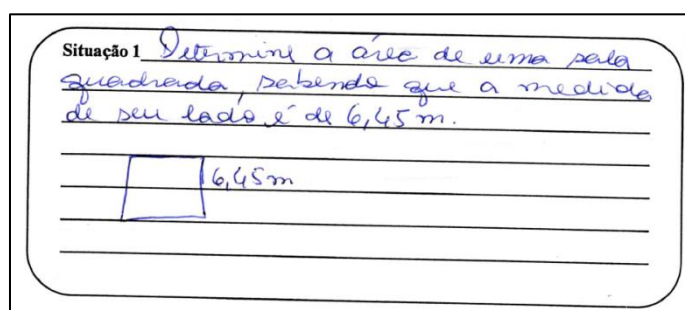 Situação 1 Determine a área de uma sala
quadrada, sabendo que a medida
de seu lado é de 6,45 m.
6,45m